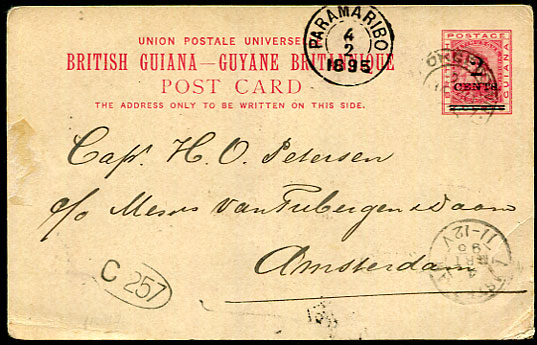 UNION POSTALE UNIVERSE
PARAMARIBO
4
2
1895
BRITISH GUIANA—GUYANE BRITANNIQUE
POST CARD
THE ADDRESS ONLY TO BE WRITTEN ON THIS SIDE.
POSTAGE
GUIANA
2
CENTS
Capt. H. O. Petersen
c/o Messrs van Tubergen & Daam
Amsterdam
11-12V
MRT
95
C 257